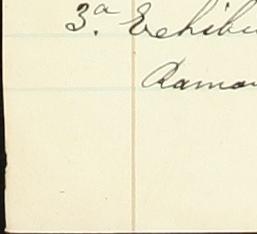 3.ª Exhibi
Ramo